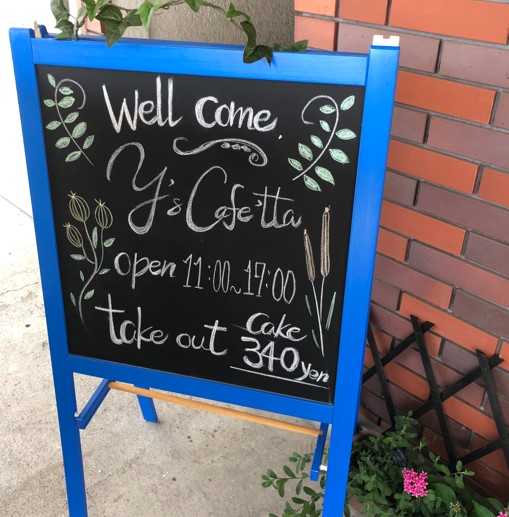 Well Come.
Y's Cafe'tta
open 11:00~17:00
take out Cake
340yen